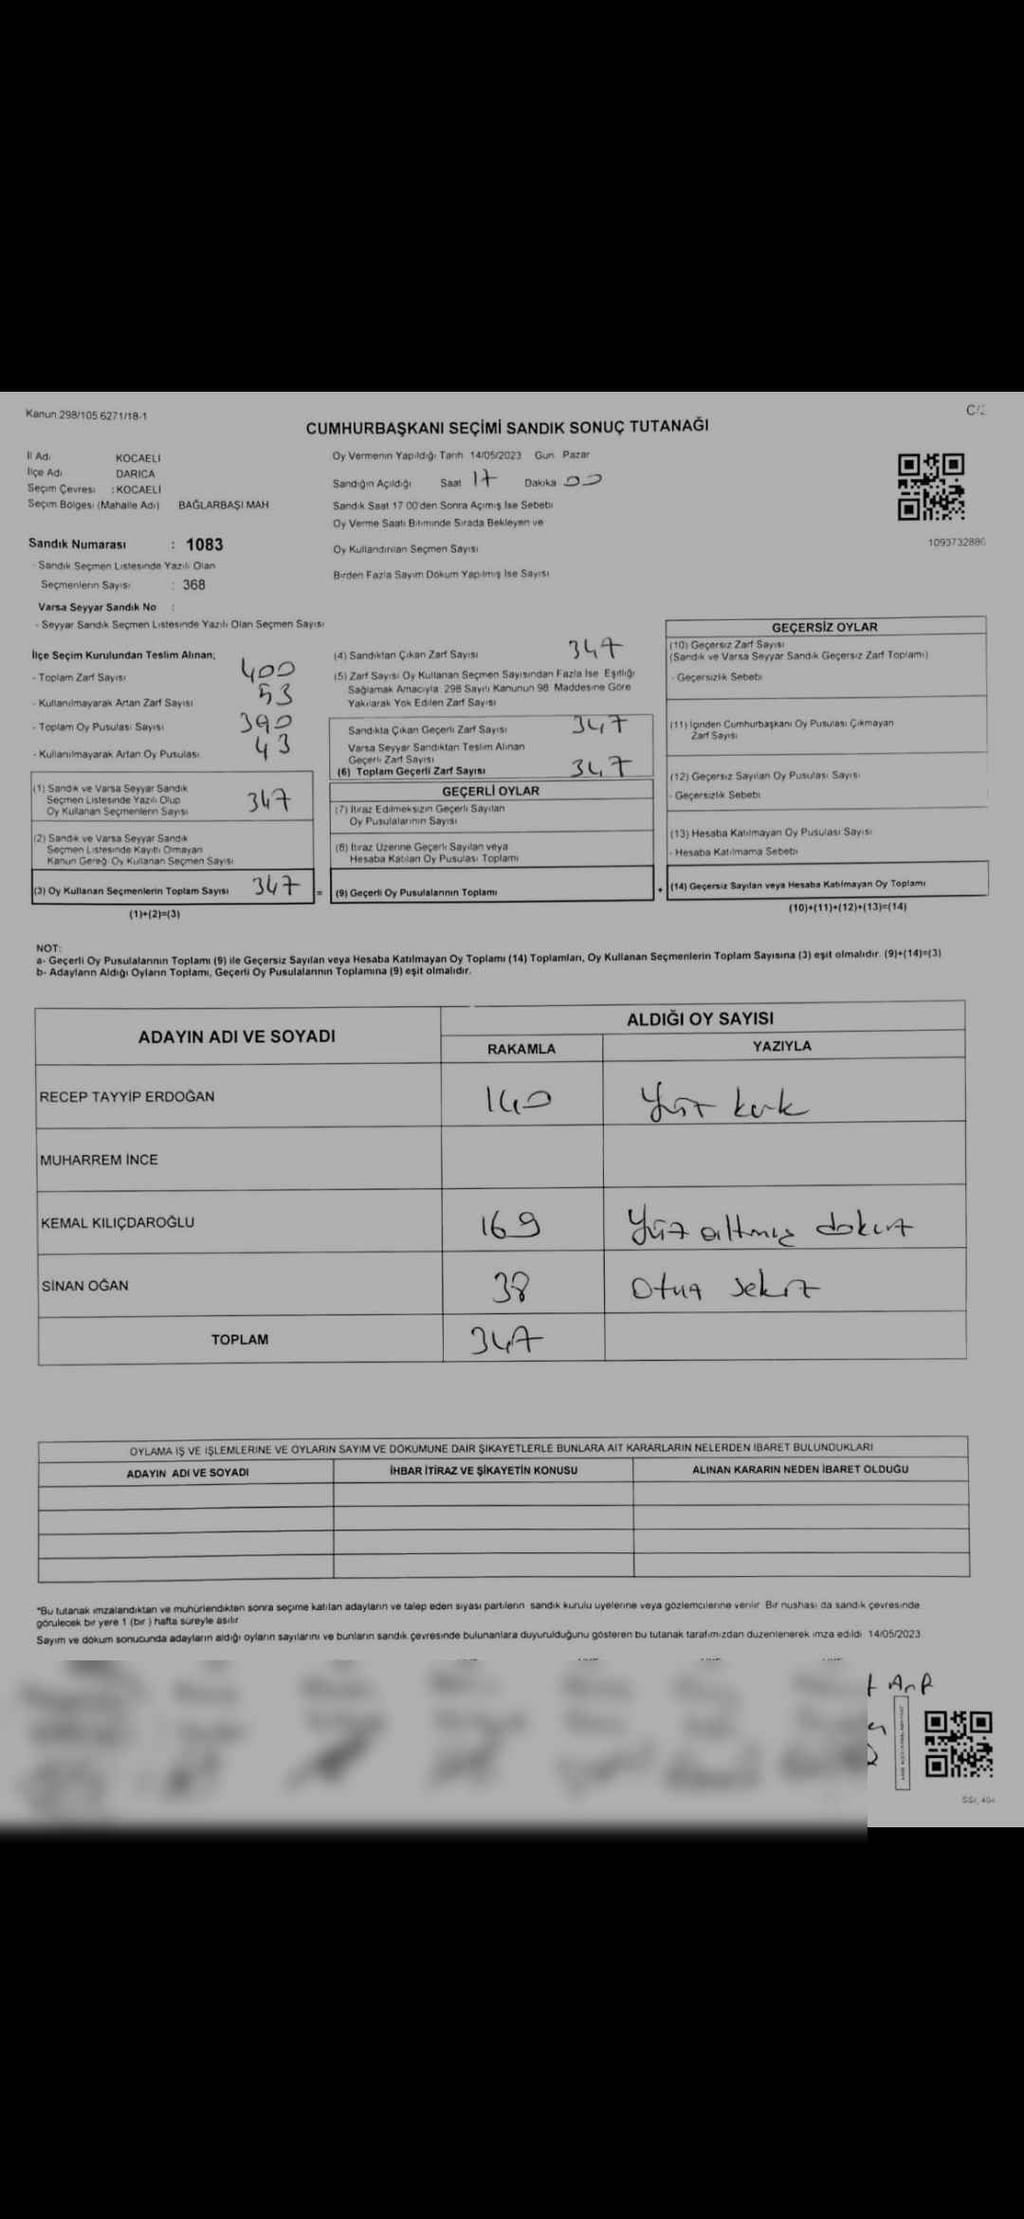 Kanun 298/105 6271/18-1
C/2
CUMHURBAŞKANI SEÇİMİ SANDIK SONUÇ TUTANAĞI
İl Adı KOCAELİ
İlçe Adı DARICA
Seçim Çevresi : KOCAELİ
Seçim Bölgesi (Mahalle Adı) BAĞLARBAŞI MAH
Oy Vermenin Yapıldığı Tarih 14/05/2023 Gün Pazar
Sandığın Açıldığı Saat 17 Dakika 00
Sandık Saat 17 00'den Sonra Açımış İse Sebebi
Oy Verme Saati Bitiminde Sırada Bekleyen ve
Oy Kullandırılan Seçmen Sayısı
Birden Fazla Sayım Döküm Yapılmış İse Sayısı
1093732886
Sandık Numarası : 1083
- Sandık Seçmen Listesinde Yazılı Olan
Seçmenlerin Sayısı : 368
Varsa Seyyar Sandık No :
- Seyyar Sandık Seçmen Listesinde Yazılı Olan Seçmen Sayısı
İlçe Seçim Kurulundan Teslim Alınan;
- Toplam Zarf Sayısı 400
- Kullanılmayarak Artan Zarf Sayısı 53
- Toplam Oy Pusulası Sayısı 390
- Kullanılmayarak Artan Oy Pusulası 43
(1) Sandık ve Varsa Seyyar Sandık
Seçmen Listesinde Yazılı Olup
Oy Kullanan Seçmenlerin Sayısı 347
(2) Sandık ve Varsa Seyyar Sandık
Seçmen Listesinde Kayıtlı Olmayan
Kanun Gereği Oy Kullanan Seçmen Sayısı
(3) Oy Kullanan Seçmenlerin Toplam Sayısı 347 =
(1)+(2)=(3)
(4) Sandıktan Çıkan Zarf Sayısı 347
(5) Zarf Sayısı Oy Kullanan Seçmen Sayısından Fazla İse Eşitliği
Sağlamak Amacıyla 298 Sayılı Kanunun 98 Maddesine Göre
Yakılarak Yok Edilen Zarf Sayısı
Sandıkta Çıkan Geçerli Zarf Sayısı 347
Varsa Seyyar Sandıktan Teslim Alınan
Geçerli Zarf Sayısı
(6) Toplam Geçerli Zarf Sayısı 347
GEÇERLİ OYLAR
(7) İtiraz Edilmeksizin Geçerli Sayılan
Oy Pusulalarının Sayısı
(8) İtiraz Üzerine Geçerli Sayılan veya
Hesaba Katılan Oy Pusulası Toplamı
(9) Geçerli Oy Pusulalarının Toplamı +
GEÇERSİZ OYLAR
(10) Geçersiz Zarf Sayısı
(Sandık ve Varsa Seyyar Sandık Geçersiz Zarf Toplamı)
- Geçersizlik Sebebi
(11) İçinden Cumhurbaşkanı Oy Pusulası Çıkmayan
Zarf Sayısı
(12) Geçersiz Sayılan Oy Pusulası Sayısı
- Geçersizlik Sebebi
(13) Hesaba Katılmayan Oy Pusulası Sayısı
- Hesaba Katılmama Sebebi
(14) Geçersiz Sayılan veya Hesaba Katılmayan Oy Toplamı
(10)+(11)+(12)+(13)=(14)
NOT:
a- Geçerli Oy Pusulalarının Toplamı (9) ile Geçersiz Sayılan veya Hesaba Katılmayan Oy Toplamı (14) Toplamları, Oy Kullanan Seçmenlerin Toplam Sayısına (3) eşit olmalıdır. (9)+(14)=(3)
b- Adayların Aldığı Oyların Toplamı, Geçerli Oy Pusulalarının Toplamına (9) eşit olmalıdır.
ADAYIN ADI VE SOYADI
ALDIĞI OY SAYISI
RAKAMLA YAZIYLA
RECEP TAYYİP ERDOĞAN 140 Yüz kırk
MUHARREM İNCE
KEMAL KILIÇDAROĞLU 169 Yüz altmış dokuz
SİNAN OĞAN 38 Otuz sekiz
TOPLAM 347
OYLAMA İŞ VE İŞLEMLERİNE VE OYLARIN SAYIM VE DÖKÜMÜNE DAİR ŞİKAYETLERLE BUNLARA AİT KARARLARIN NELERDEN İBARET BULUNDUKLARI
ADAYIN ADI VE SOYADI İHBAR İTİRAZ VE ŞİKAYETİN KONUSU ALINAN KARARIN NEDEN İBARET OLDUĞU
*Bu tutanak imzalandıktan ve mühürlendikten sonra seçime katılan adayların ve talep eden siyasi partilerin sandık kurulu üyelerine veya gözlemcilerine verilir Bir nüshası da sandık çevresinde
görülecek bir yere 1 (bir ) hafta süreyle asılır
Sayım ve döküm sonucunda adayların aldığı oyların sayılarını ve bunların sandık çevresinde bulunanlara duyurulduğunu gösteren bu tutanak tarafımızdan düzenlenerek imza edildi 14/05/2023